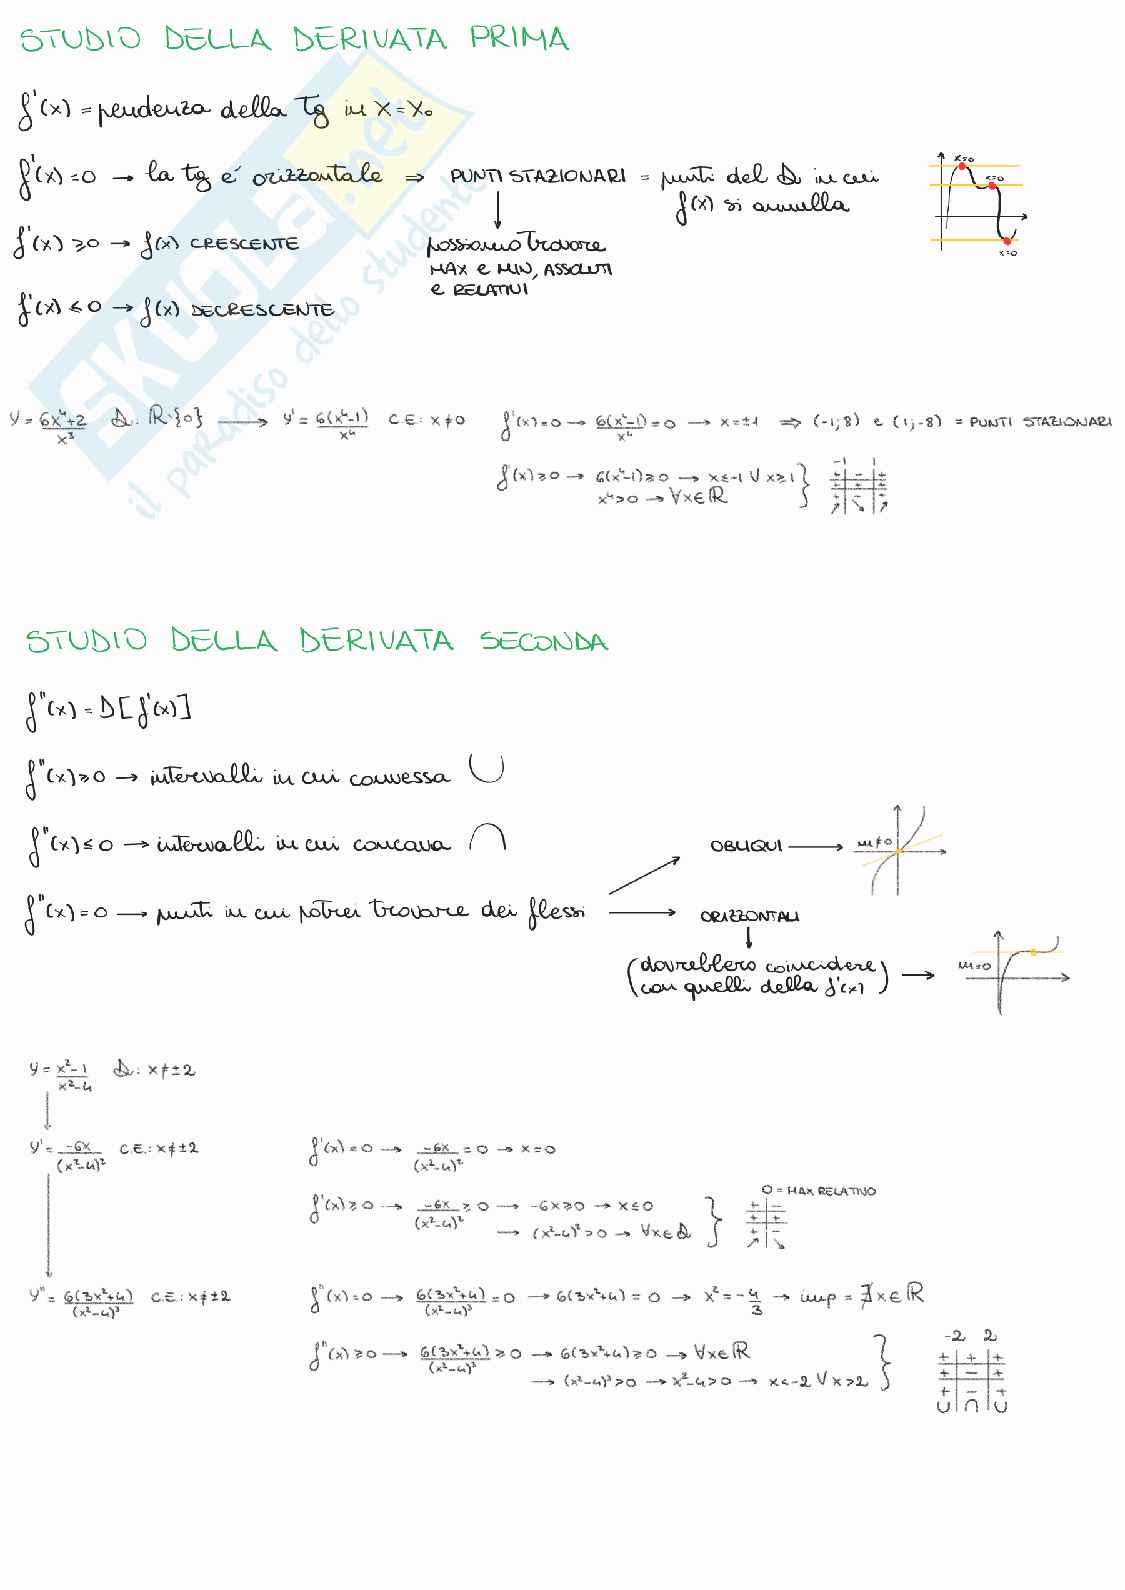 STUDIO DELLA DERIVATA PRIMA
f'(x) = pendenza della Tg in x=x₀
f'(x)=0 → la tg é orizzontale ⇒ PUNTI STAZIONARI = punti del D in cui f(x) si annulla
x=0
x=0
x=0
↓
possiamo trovare
MAX e MIN, ASSOLUTI
e RELATIVI
f'(x) ≥0 → f(x) CRESCENTE
f'(x) ≤ 0 → f(x) DECRESCENTE
SKUOLA.net
il paradiso dello studente
y = 6x⁴+2/x³ D: R-{0} → y' = 6(x⁴-1)/x⁴ C.E: x≠0 f'(x)=0 → 6(x⁴-1)/x⁴=0 → x=±1 ⇒ (-1;8) e (1;-8) = PUNTI STAZIONARI
f'(x)≥0 → 6(x⁴-1)≥0 → x≤-1 V x≥1
x⁴>0 → ∀x∈R
-1 1
+ | - | +
+ | + | +
+ | - | +
↗ | ↘ | ↗
STUDIO DELLA DERIVATA SECONDA
f"(x) = D[f'(x)]
f"(x)≥0 → intervalli in cui convessa ∪
f"(x)≤ 0 → intervalli in cui concava ∩
f"(x)=0 → punti in cui potrei trovare dei flessi
OBLIQUI → m≠0
ORIZZONTALI
↓
(dovrebbero coincidere
con quelli della f'(x)) → m=0
y = x²-1/x²-4 D: x≠±2
y' = -6x/(x²-4)² C.E.: x≠±2 f'(x)=0 → -6x/(x²-4)²=0 → x=0
f'(x)≥0 → -6x/(x²-4)²≥0 → -6x≥0 → x≤0
→ (x²-4)²>0 → ∀x∈D
0 = MAX RELATIVO
+ | -
+ | +
+ | -
↗ | ↘
y" = 6(3x²+4)/(x²-4)³ C.E: x≠±2 f"(x)=0 → 6(3x²+4)/(x²-4)³=0 → 6(3x²+4)=0 → x²=-4/3 → imp = ∄x∈R
f"(x)≥0 → 6(3x²+4)/(x²-4)³≥0 → 6(3x²+4)≥0 → ∀x∈R
→ (x²-4)³>0 → x²-4>0 → x<-2 V x>2
-2 2
+ | + | +
+ | - | +
+ | - | +
∪ | ∩ | ∪